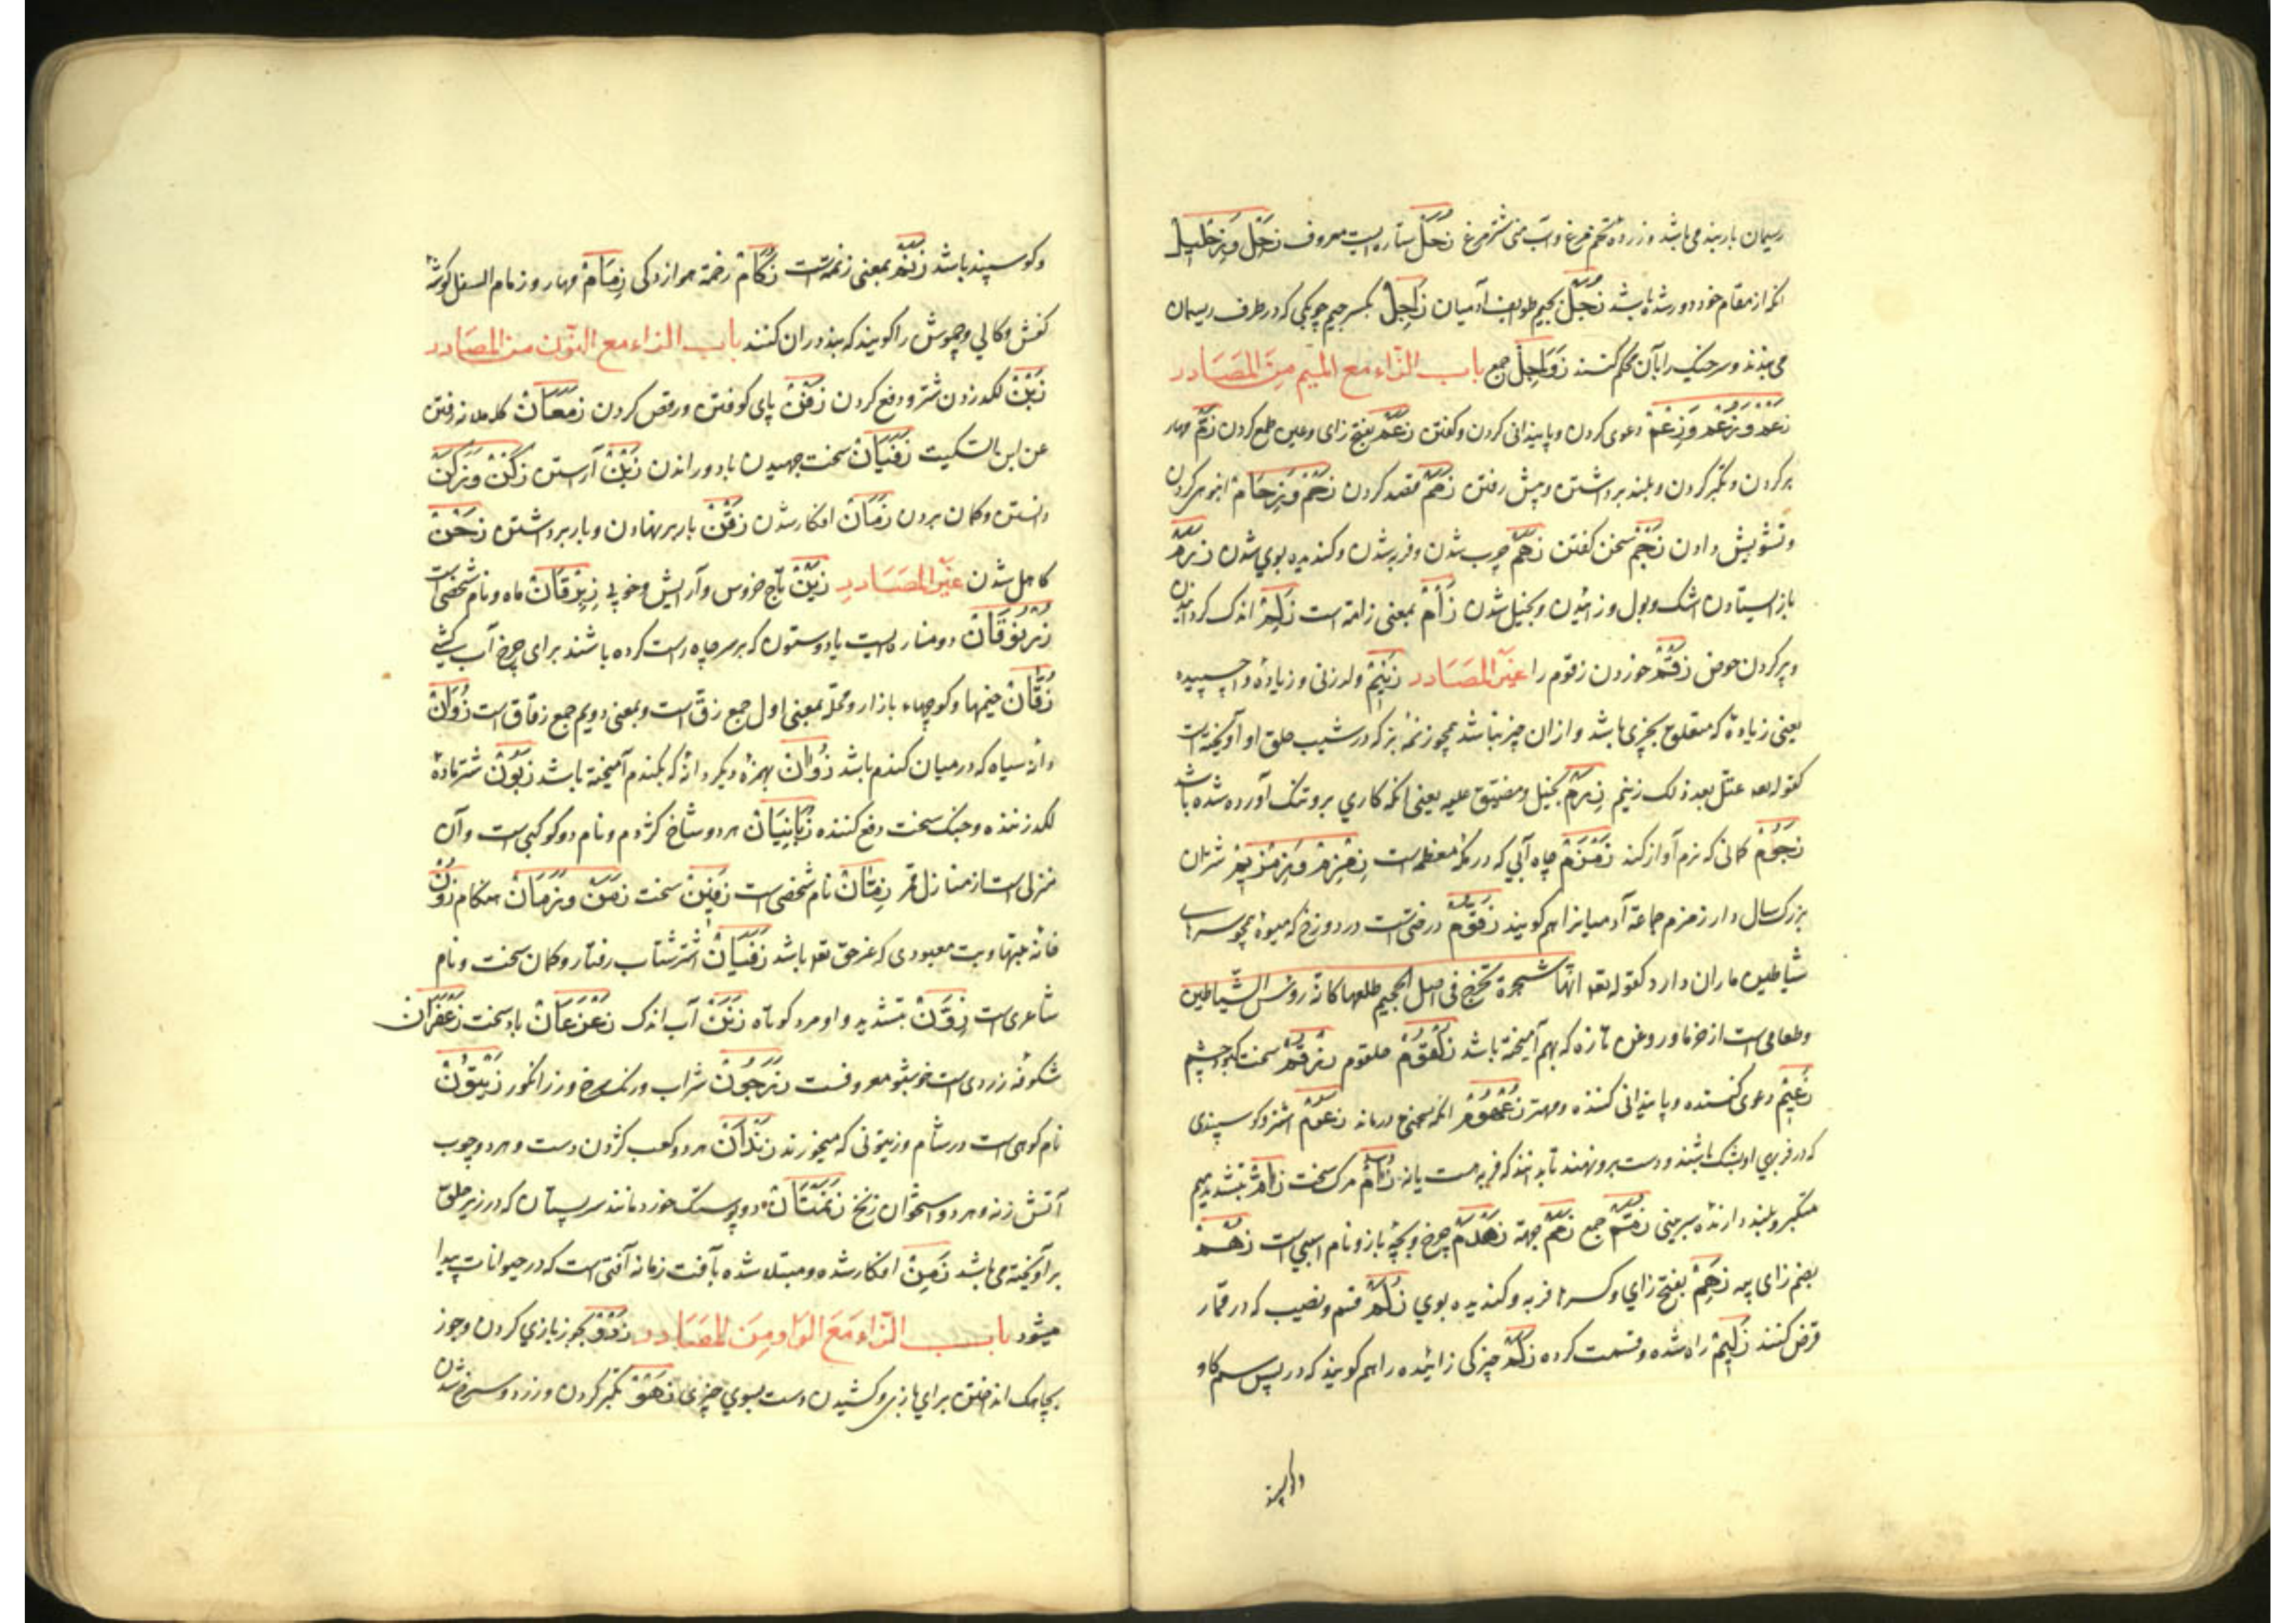 ریسمان باربند می باشد و زرده تخم مرغ و آب منی شترمرغ زُحَل ستاره ایست معروف زَحِل وَزِحلیل
انکه از مقام خود دور شده باشد زُجَل بجیم طوایف آدمیان زاجِل بکسر جیم چوبکی که در طرف ریسمان
می بندند و سر خیک را بآن محکم کنند زَواجِل جمع باب الزّاء مع المیم مِنَ المَصَادر
زَعْم وَزُعْم وَزِعْم دعوی کردن و پایندانی کردن و کفتن زَعَم بفتح زای و عین طمع کردن زَمّ مهار
بر کردن و تکبر کردن و بلند برداشتن و پیش رفتن زَهْم قصد کردن زَحْم وَزِحَام انبوهی کردن
و تشویش دادن زَجْم سخن کفتن زَهَم چرب شدن و فربه شدن و کندیده بوی شدن زَرَم
باز ایستادن اشک و بول و زائیدن و بخیل شدن زَأم بمعنی زامة است زَلم اندک کردانیدن
و پر کردن حوض زَقْم خوردن زقوم را غیر المَصَادر زَنِیم ولد زنی و زیاده و اچسپیده
یعنی زیادهٔ که متعلق بچیزی باشد و از ان چیز نباشد همچو زنمهٔ بز که در شیب حلق او آویخته است
کقوله تعه عتلّ بعد ذلک زنیم زَرِم بخیل و مضیّق علیه یعنی انکه کاری برو تنک آورده شده باشد
زَجُوم کمانی که نرم آواز کند زَمْزَم چاه آبی که در مکه معظمه است زِمْزِم وَزِمْزِیم شتران
بزرک سال دار زمزم جماعة آدمیانرا هم کویند زَقُّوم درختی است در دوزخ که میوهٔ همچو سرهاء
شیاطین ماران دارد کقوله تعه انّها شجرة تخرج فی اصل الجحیم طلعها کانّه رؤس الشّیاطین
و طعامی است از خرما و روغن تازه که بهم آمیخته باشد زُلْقُوم حلقوم زُرْقُم سخت کبود چشم
زَعِیم دعوی کننده و پایندانی کننده و مهتر زُعْمُوم انکه بسخن درماند زَعُوم اشتر و کوسپندی
که در فربهی او بشک باشند و دست برو نهند تا بدانند که فربه هست یا نه زُؤام مرک سخت زامّ بتشدید میم
متکبر و بلند دارندهٔ سر بینی زُمَّم جمع زَمَم جهة زَهْدَم چرغ و بچهٔ باز و نام اسپی است زُهْم
بضم زای پیه زَهِم بفتح زای و کسر ها فربه و کندیده بوی زَلَم قسم و نصیب که در قمار
قرض کنند زَلِیم راه شده و قسمت کرده زَلَم چیزکی زائیده را هم کویند که در پس سم کاو
وکوسپند
وکوسپند باشد زَنَم بمعنی زنمه است زُکَام رخمة هوازدکی زِمَام مهار و زمام النعل کوشهٔ
کفش و کالی و چموش را کویند که بند در ان کنند باب الزاء مع النّون من المصَادر
زَبْن لکد زدن شتر و دفع کردن زَفْن پای کوفتن و رقص کردن زَمَعَان کاهلانه رفتن
عن ابن السّکیت زَفَیَان سخت جهیدن باد و راندن زَیْن آراستن زَکْن وَزَکَن
دانستن و کمان بردن زَمَان افکار شدن زَفْن بار بر نهادن و بار برداشتن زَحْن
کاهل شدن غیر المصَادرِ زَیْن تاج خروس و آرایش و خوبی زِبْرِقَان ماه و نام شخصی است
زُرْنُوقَان دو مناره ایست یا دو ستون که بر سر چاه راست کرده باشند برای چرخ آب کشی
زُقَّان خیمها و کوچهاء بازار و محلّه بمعنی اول جمع زق است و بمعنی دویم جمع زقاق است زُوَان
دانهٔ سیاه که در میان کندم باشد زُؤان بهمزه دیکر دانهٔ که بکندم آمیخته باشد زَبُون شتر مادهٔ
لکد زننده و جنک سخت دفع کننده زُبَانِیَان هر دو شاخ کژدم و نام دو کوکبی است و آن
منزلی است از منازل قمر زِمّان نام شخصی است زَفِین سخت زَمَن وَزَمَان هنکام زُوْن
خانه بتها و بت معبودی که غیر حق تعه باشد زَفَیَان اشتر شتاب رفتار و کمان سخت و نام
شاعری است زِوَنّ بتشدید و او مرد کوتاه زَنَن آب اندک زَعْزَعَان باد سخت زَعْفَرَان
شکوفه زردی است خوشبو معروفست زَرَجُون شراب و رنک سرخ و رز انکور زَیْتُون
نام کوهی است در شام و زیتونی که میخورند زَنْدَان هر دو کعب کژدن دست و هر دو چوب
آتش زنه و هر دو استخوان زنخ زَنَمَتَان دو پوستک خورد مانند سرپستان که در زیر حلق
بز آویخته می باشد زَمِن افکار شده و مبتلا شده بآفت زمانه آفتی است که در حیوانات پیدا
میشود باب الزّاء مَعَ الوَاو مِنَ المصَادر زَدْو بجوز بازی کردن و جوز
بچاهک انداختن برای بازی و کشیدن دست بسوی چیزی زَهْو تکبر کردن و زرد و سرخ شدن